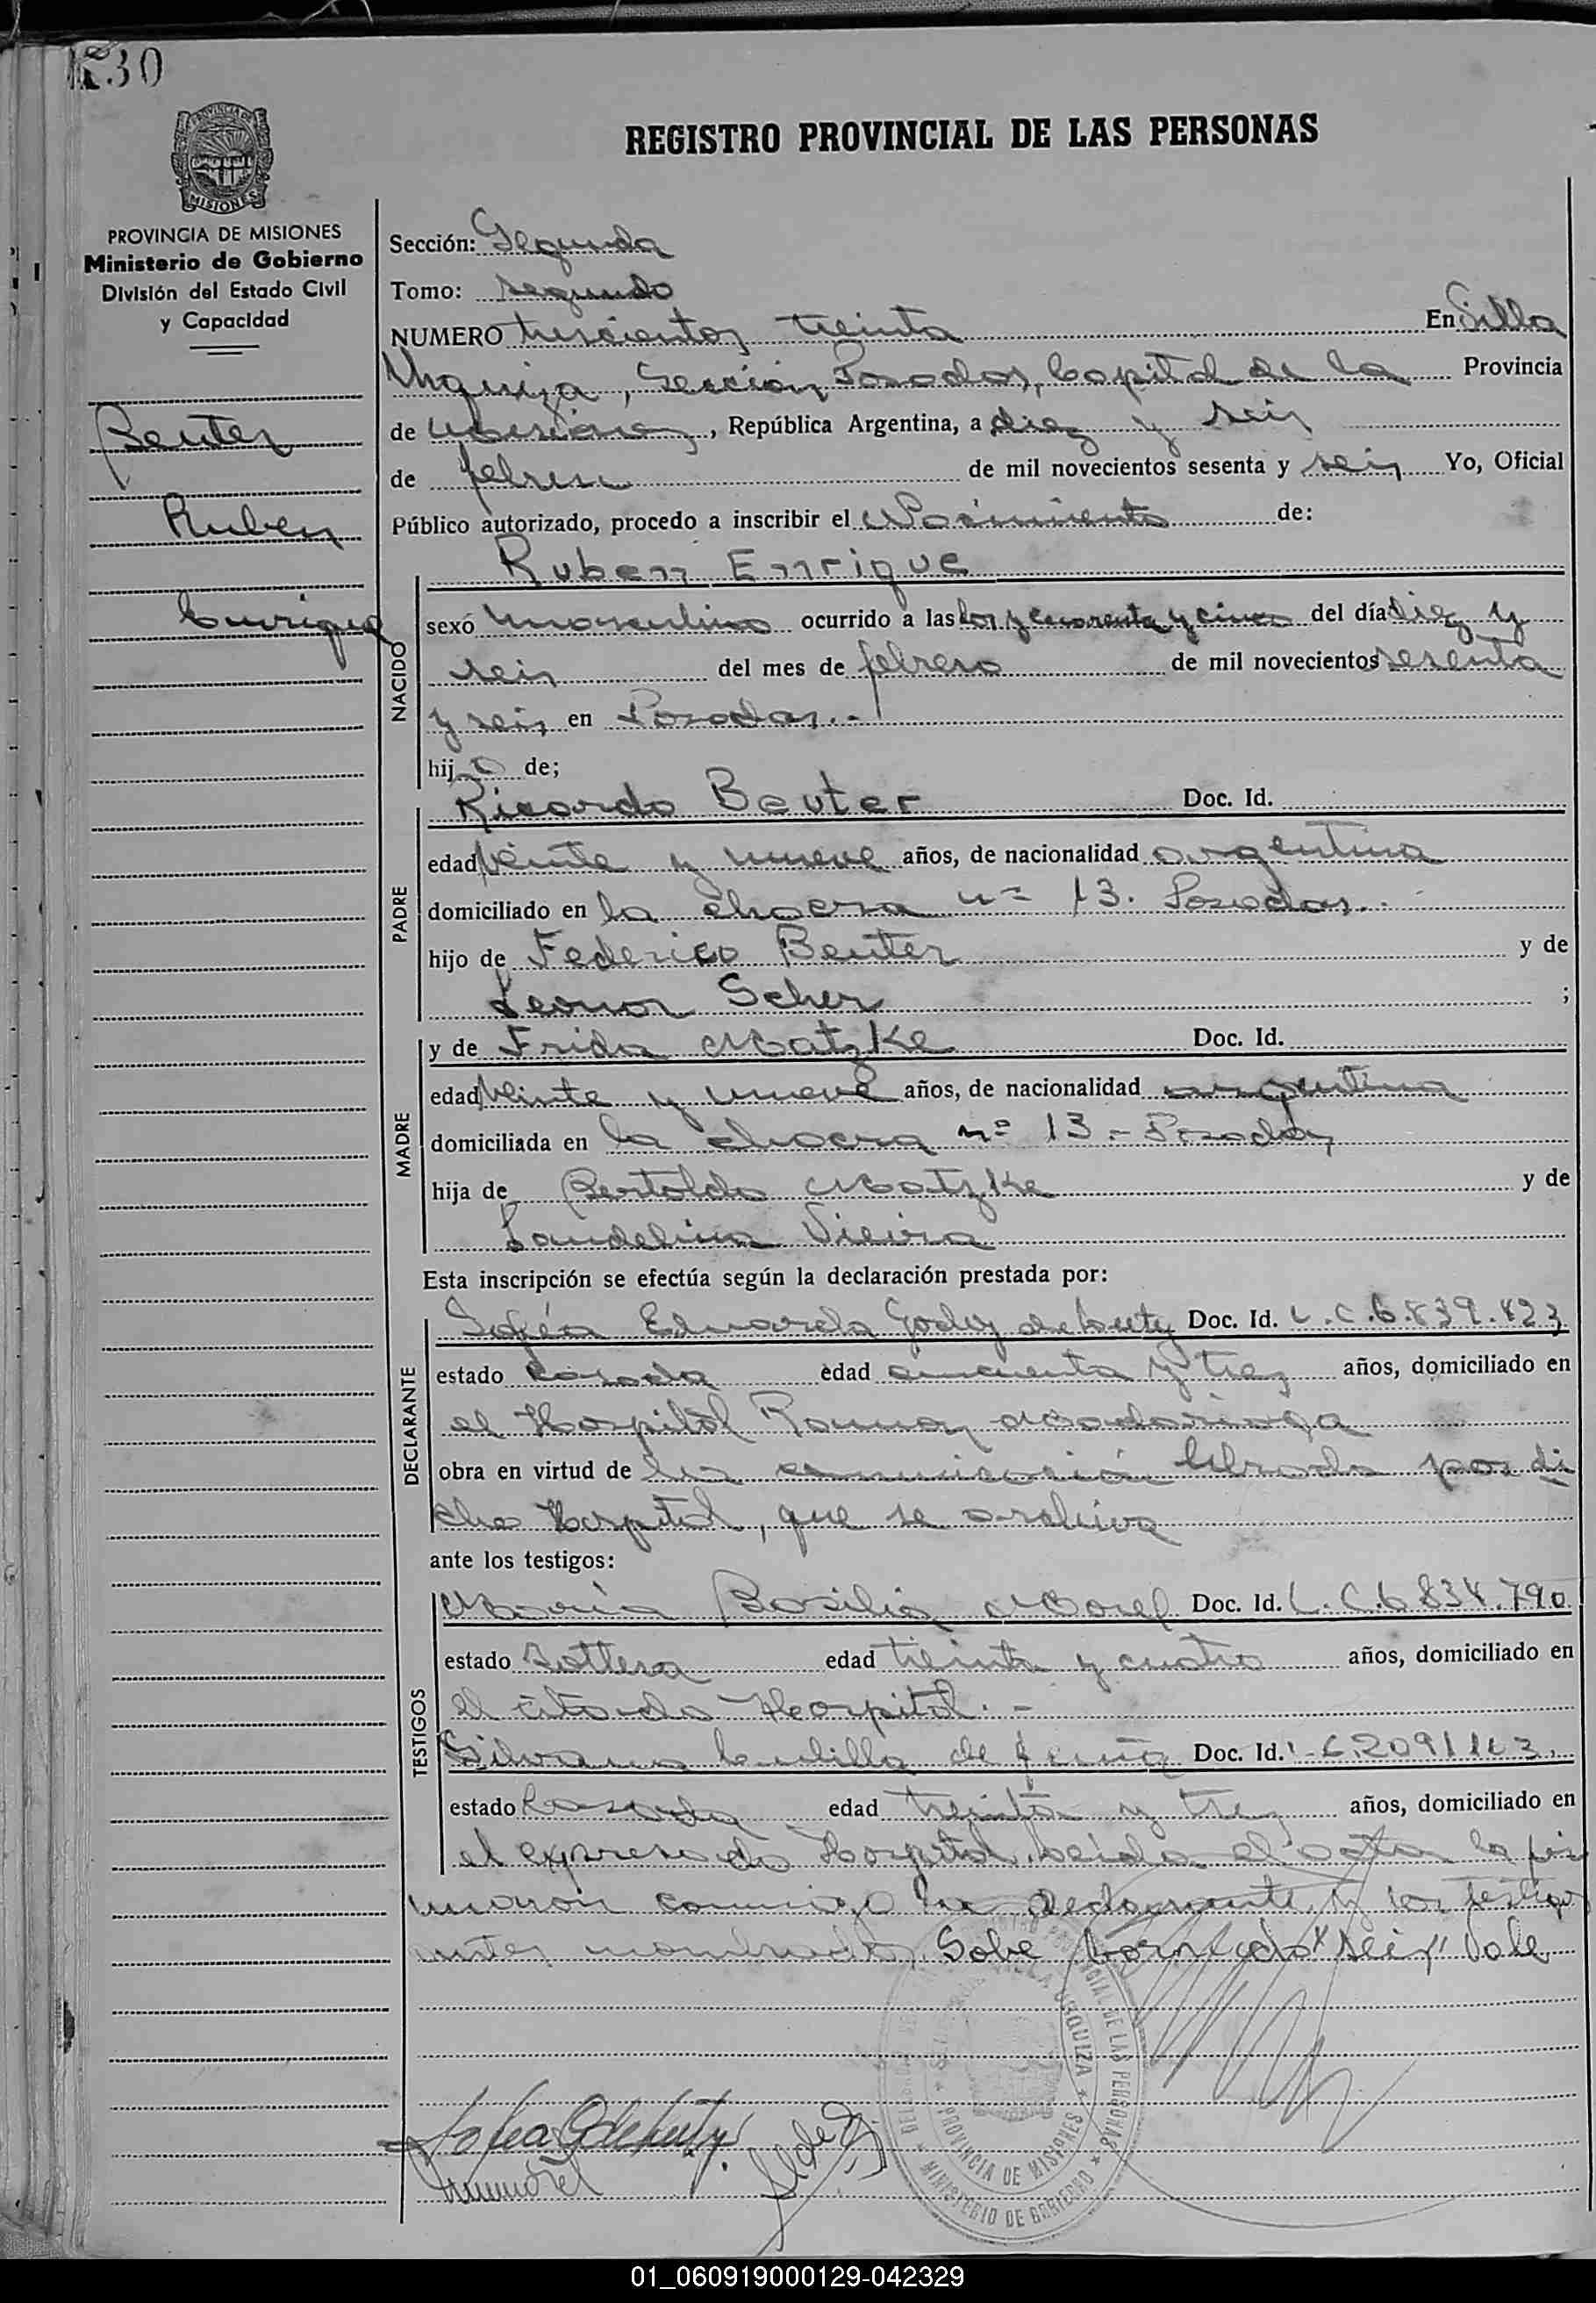 330
REGISTRO PROVINCIAL DE LAS PERSONAS
PROVINCIA DE MISIONES
MISIONES
PROVINCIA DE MISIONES
Ministerio de Gobierno
División del Estado Civil
y Capacidad
Beuter
Ruben
Enrique
Sección: Segunda
Tomo: segundo
NUMERO trescientos treinta En Villa
Urquiza, Sección Posadas, Capital de la Provincia
de Misiones, República Argentina, a diez y seis
de febrero de mil novecientos sesenta y seis Yo, Oficial
Público autorizado, procedo a inscribir el Nacimiento de:
NACIDO
Ruben Enrique
sexo masculino ocurrido a las dos y cuarenta y cinco del día diez y
seis del mes de febrero de mil novecientos sesenta
y seis en Posadas.-
hijo de;
PADRE
Ricardo Beuter Doc. Id.
edad veinte y nueve años, de nacionalidad argentina
domiciliado en la chacra nº 13. Posadas.-
hijo de Federico Beuter y de
Leonor Scher ;
MADRE
y de Frida Matzke Doc. Id.
edad veinte y nueve años, de nacionalidad argentina
domiciliada en la chacra nº 13 - Posadas
hija de Bertoldo Matzke y de
Laudelina Vieira
Esta inscripción se efectúa según la declaración prestada por:
DECLARANTE
Sofía Eduarda Godoy de Doc. Id. L.C.6.839.823
estado casada edad cincuenta y tres años, domiciliado en
el Hospital Ramon Madariaga
obra en virtud de la comunicación librada por di
cho Hospital, que se archiva
ante los testigos:
TESTIGOS
María Basilia Morel Doc. Id. L.C.6834.790
estado soltera edad treinta y cuatro años, domiciliado en
el citado Hospital.-
Silvana de Doc. Id. 6.2091163
estado casada edad treinta y tres años, domiciliado en
el expresado Hospital. Leída el acta la fir
maron conmigo la declarante y los testigos
antes nombrados. Sobe borrado "seis" Vale
REGISTRO PROVINCIAL DE LAS PERSONAS
VILLA URQUIZA
PROVINCIA DE MISIONES
MINISTERIO DE GOBIERNO
01_060919000129-042329